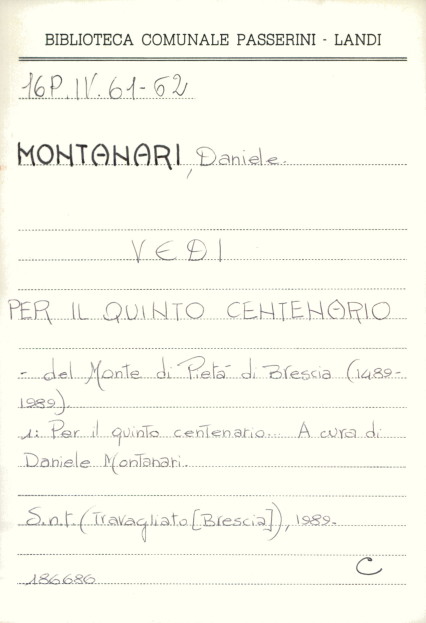 BIBLIOTECA COMUNALE PASSERINI - LANDI
16P.IV.61-62
MONTANARI, Daniele.
VEDI
PER IL QUINTO CENTENARIO
- del Monte di Pietà di Brescia (1489-
1989).
1: Per il quinto centenario... A cura di
Daniele Montanari.
S.n.t. (Travagliato [Brescia]), 1989.
C
186686